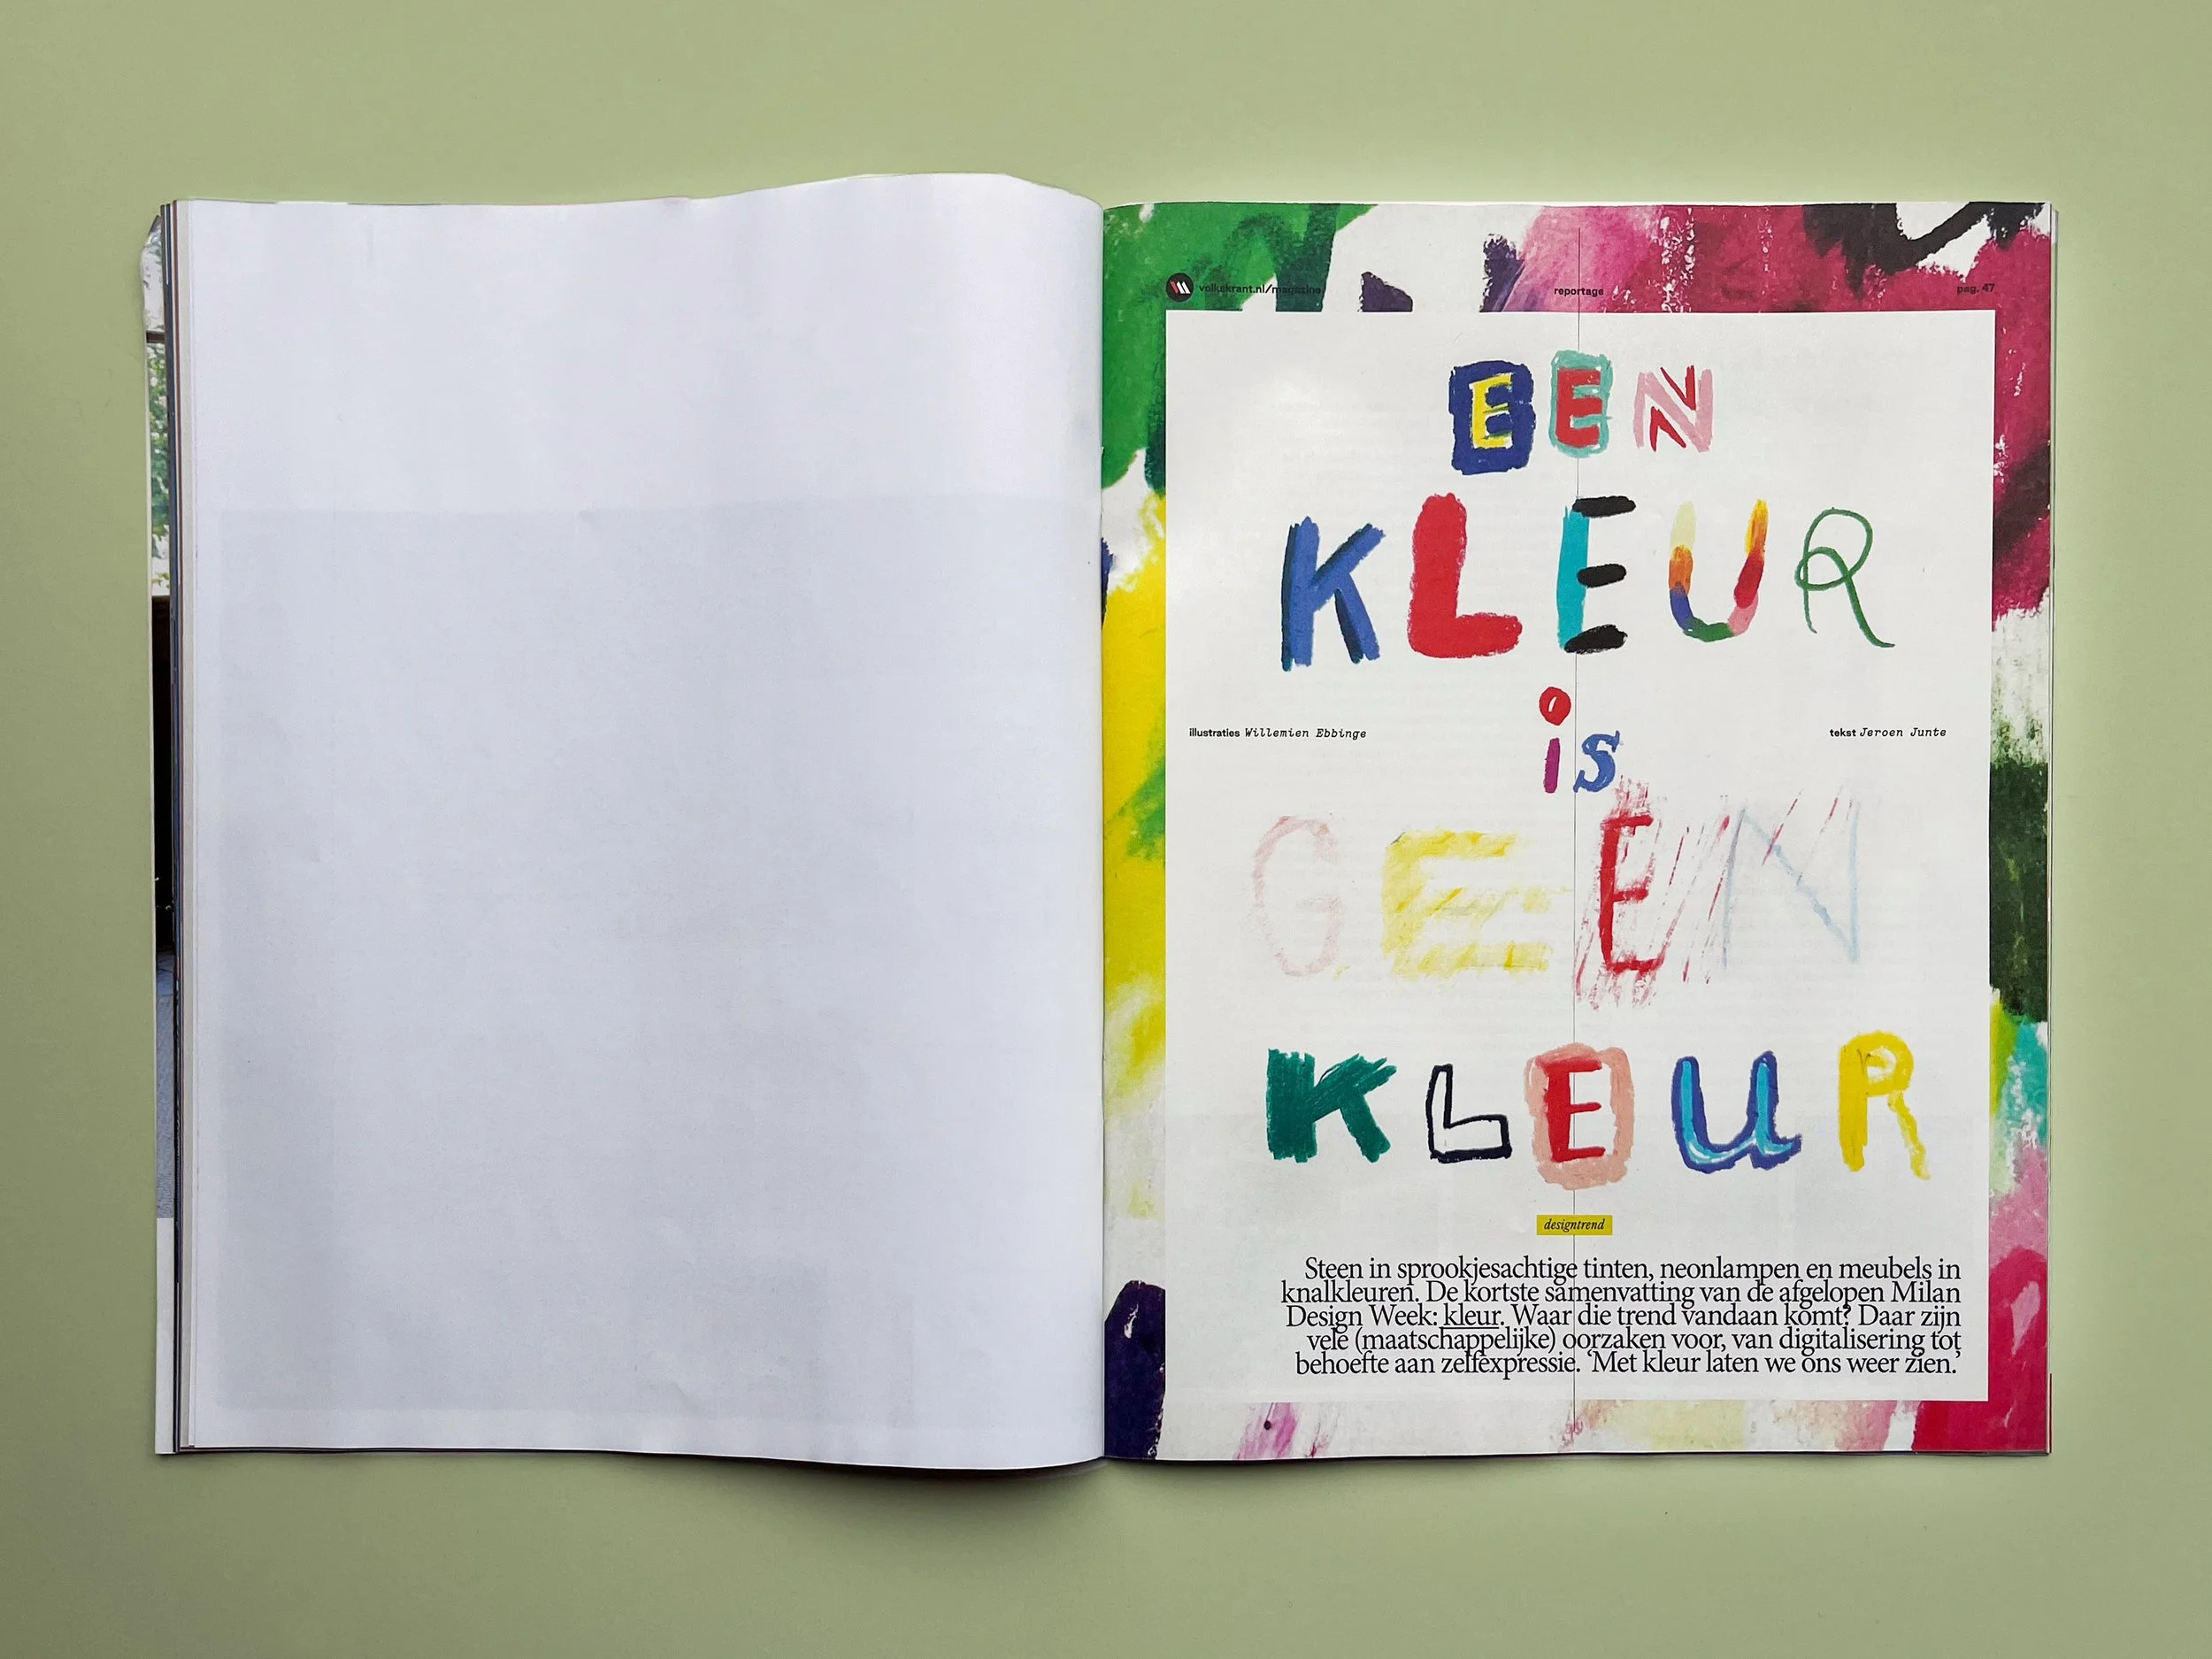 volkskrant.nl/magazine
reportage
pag. 47
EEN
KLEUR
is
illustraties Willemien Ebbinge
tekst Jeroen Junte
GEEN
KLEUR
designtrend
Steen in sprookjesachtige tinten, neonlampen en meubels in
knalkleuren. De kortste samenvatting van de afgelopen Milan
Design Week: kleur. Waar die trend vandaan komt? Daar zijn
vele (maatschappelijke) oorzaken voor, van digitalisering tot
behoefte aan zelfexpressie. ‘Met kleur laten we ons weer zien.’